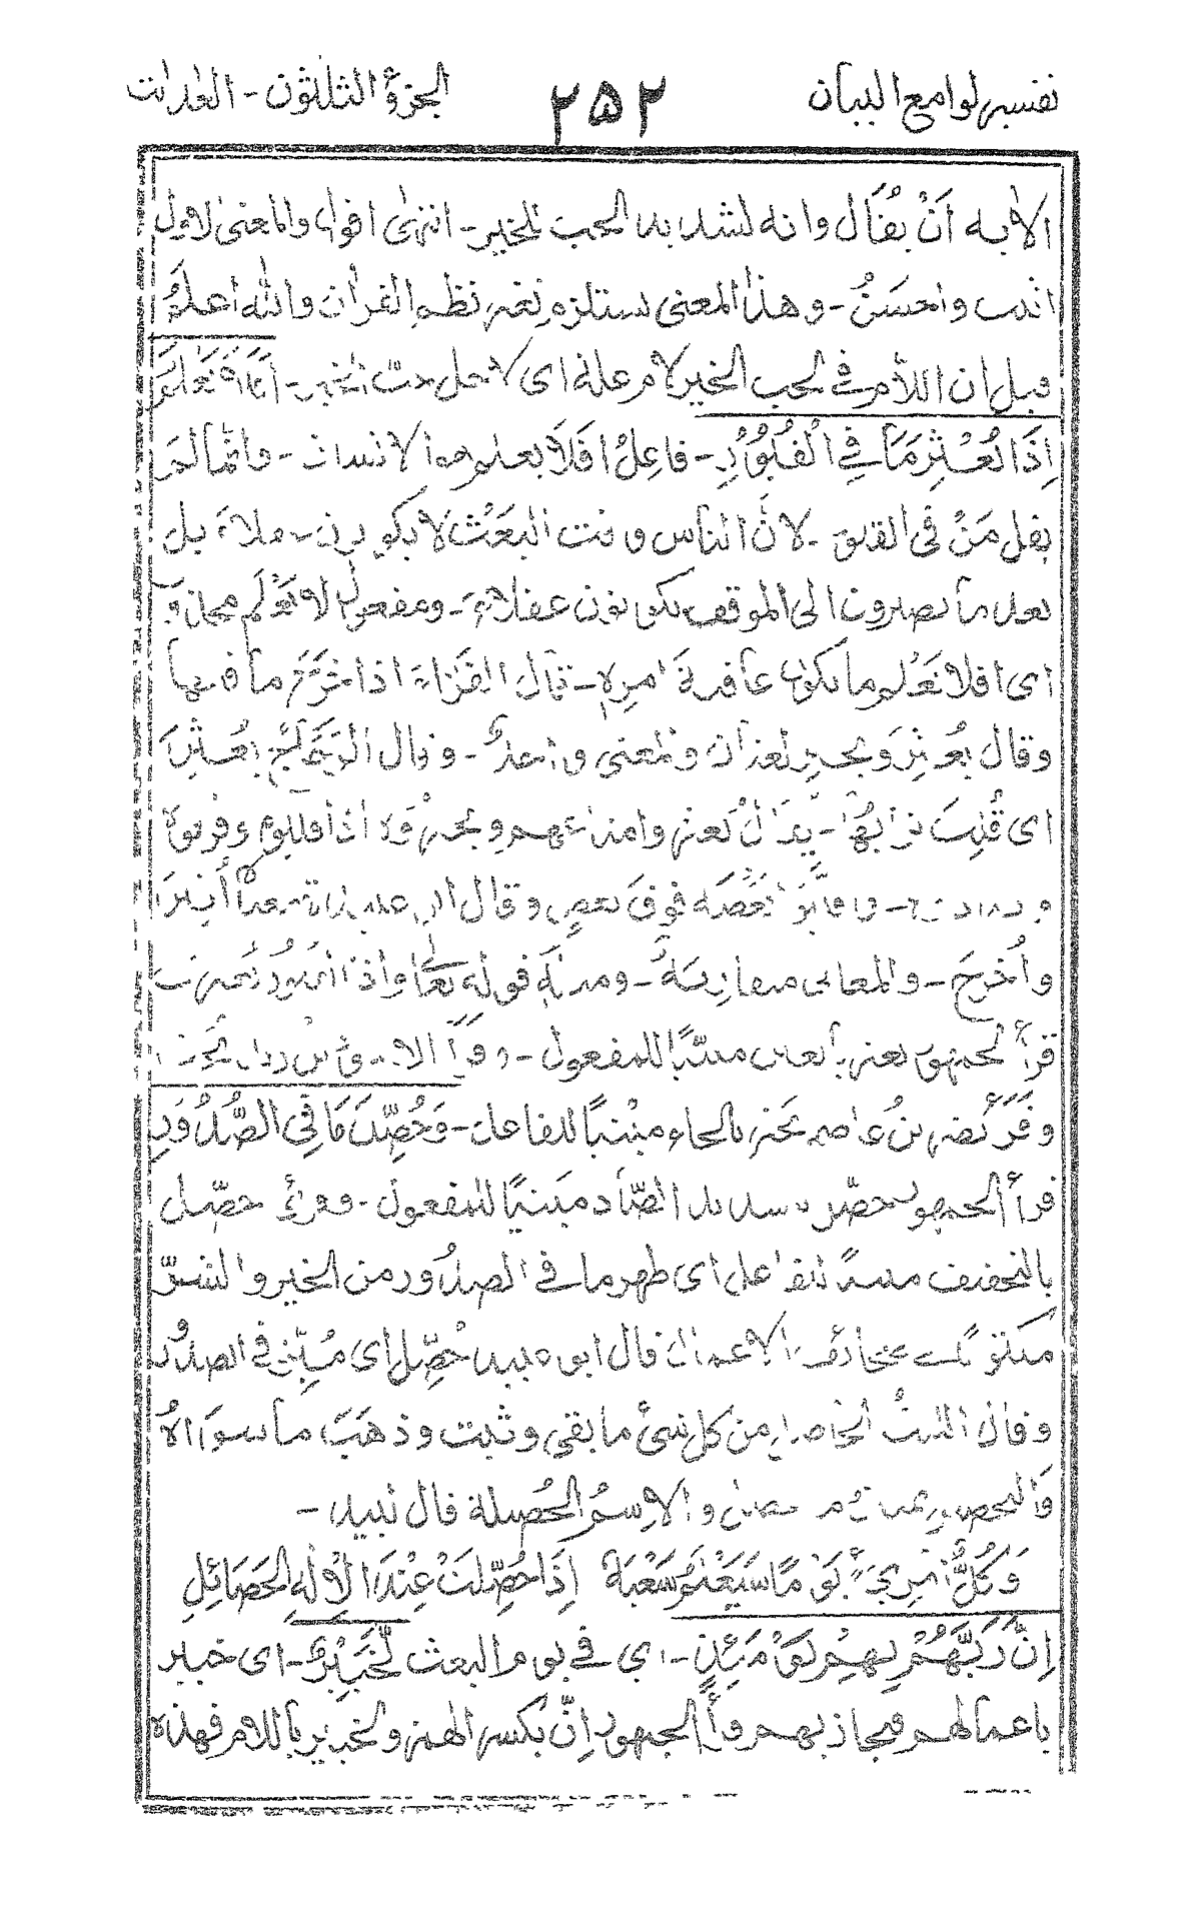 تفسیر لوامع البیان ۲۵۲ الجزء الثلثون - العدیٰت
الاٰیه اَنْ یُقَالَ وانه لشدید الحب للخیر - انتهٰی اقول والمعنی الاول
انسب واحسَنُ - وهذا المعنی یستلزم تغیر نظم القراٰن والله اعلمُ
قیل ان اللام فی لحب الخیر لام علة ای لاجل حب الخیر - اَفَلَا یَعْلَمُ
اِذَا بُعْثِرَ مَا فِی الْقُبُوْرِ - فاعلُ افَلَا یعلم هو الانسان - وانما لم
یقل مَنْ فی القبور - لانَّ الناس وقت البَعْث لا یکونون عقلاء بل
بعد ما یصیرون الی الموقف یکونون عقلاء - ومفعول لا یَعْلَم محذوف
ای افلا یَعْلم ما یکون عاقبةَ امره - قال الفَرّاء اذا خَرَجَ ما فیها
وقال بُعْثِرَ وبُحْثِر لغتان والمعنی واحدٌ - وقال الزَجّاج بُعْثِرَ
ای قُلِبَ ترابُها - یقال بَعثر وامتاعهم وبحثروه اذا قلبوه وفرقوه
وبددوه - وقالوا بَعْضَه فوقَ بعضٍ وقال ابو عبیدة بعثر اُثیرَ
واُخرِجَ - والمعانی متقاربةٌ - ومنه قوله تعالٰی واذا القبور بعثرت
قرأ الجمهور بعثر بالعین مبنیًّا للمفعول - وقرأ الاسود بن زید بُحِثَ
وقرَأ نصر بنُ عاصم بحثر بالحاء مبْنیًّا للفاعل - وَحُصِّلَ مَا فِی الصُّدُوْرِ
قرأ الجمهور حصّل بتشدید الصّاد مبنیًّا للمفعول - وقرئ حصّل
بالتخفیف مبنیًّا للفاعل ای ظهر ما فی الصدُور من الخیر والشرّ
قال ابو عبیدة حُصِّل ای مُیّز ما فی الصدُور
وقال اللیثُ الحاصل من کل شئ ما بقی وثبت وذهَبَ ما سواه
والتحصیل والاِسمُ الحُصیلة قال لبید -
وَکُلُّ امْرِئٍ یَوْمًا سَیَعْلَمُ سَعْیَهٗ اِذَا حُصِّلَتْ عِنْدَ الْاِلٰهِ الْحَصَائِلُ
اِنَّ رَبَّهُمْ بِهِمْ یَوْمَئِذٍ - ای فی یوم البعث لَّخَبِیْرٌ - ای خبیر
باعمالهم ومجازیهم قرأ الجمهور اِنَّ بکسر الهمز ولخبیر باللام فهذه